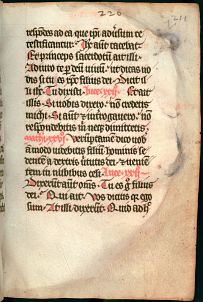 226
211
respōdes ad ea que ipi aduersum te
testificantur. Ihs aūt tacebat
Et princeps sacerdotū ait illi.
Adiuro te per deū uiuū. ut dicas no
bis si tu es xps filius dei. Dicit il
li ihs Tu dixisti. luce xxij. Et ait
illis. Si uobis dixero. nō credetis
michi. Si aūt & interrogauero. nō
respondebitis michi neqz dimittetis.
mathi xxvj. Uerūptamē dico uob
amodo uidebitis filiū hominis se
dentē a dextris uirtutis dei. & ueniē
tem in nubibus celi. Luce xxij.
Dixerūt aūt oms. Tu es g filius
dei. Qui ait. Vos dicitis qz ego
sum. At illi dixerūt. Quid adh